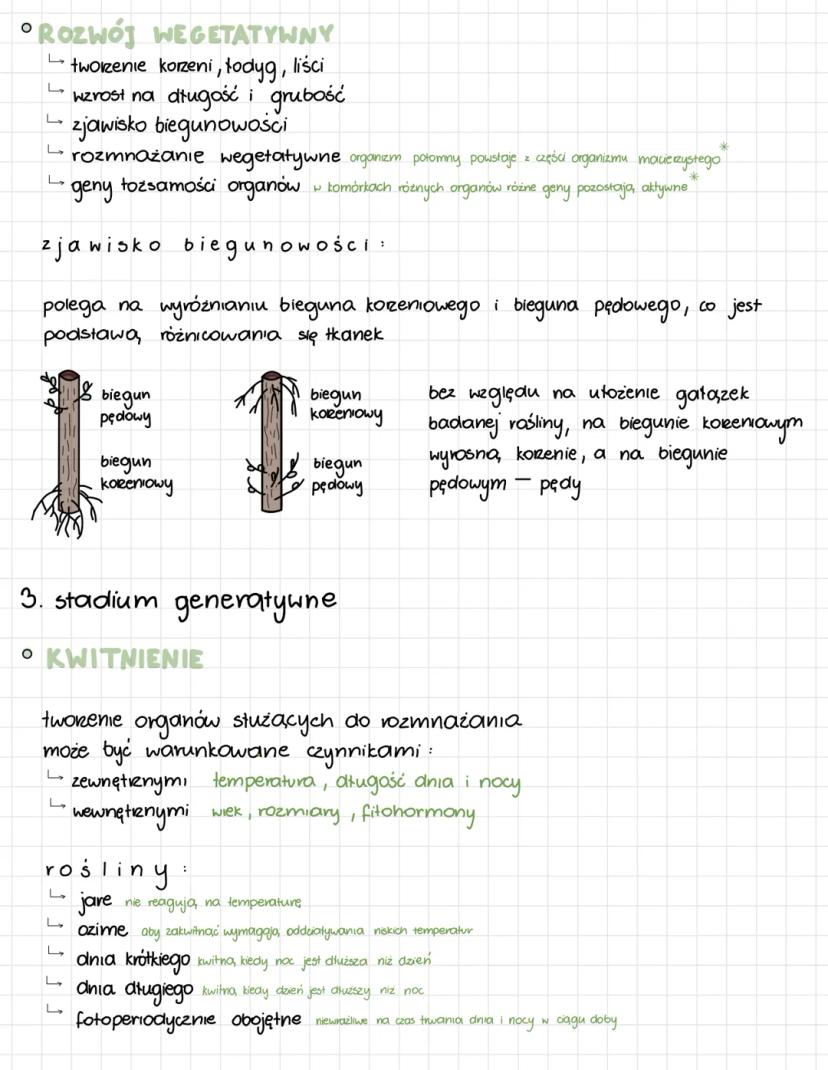 ROZWÓJ WEGETATYWNY
↳ tworzenie korzeni, łodyg, liści
↳ wzrost na długość i grubość
↳ zjawisko biegunowości
↳ rozmnażanie wegetatywne organizm potomny powstaje z części organizmu macierzystego*
↳ geny tożsamości organów w komórkach różnych organów różne geny pozostają aktywne*
zjawisko biegunowości:
polega na wyróżnianiu bieguna korzeniowego i bieguna pędowego, co jest
podstawą różnicowania się tkanek
biegun
pędowy
biegun
korzeniowy
biegun
korzeniowy
biegun
pędowy
bez względu na ułożenie gałązek
badanej rośliny, na biegunie korzeniowym
wyrosną korzenie, a na biegunie
pędowym – pędy
3. stadium generatywne
KWITNIENIE
tworzenie organów służących do rozmnażania
może być warunkowane czynnikami:
↳ zewnętrznymi temperatura, długość dnia i nocy
↳ wewnętrznymi wiek, rozmiary, fitohormony
rośliny:
↳ jare nie reagują na temperaturę
↳ ozime aby zakwitnąć wymagają oddziaływania niskich temperatur
↳ dnia krótkiego kwitną, kiedy noc jest dłuższa niż dzień
↳ dnia długiego kwitną, kiedy dzień jest dłuższy niż noc
↳ fotoperiodycznie obojętne niewrażliwe na czas trwania dnia i nocy w ciągu doby